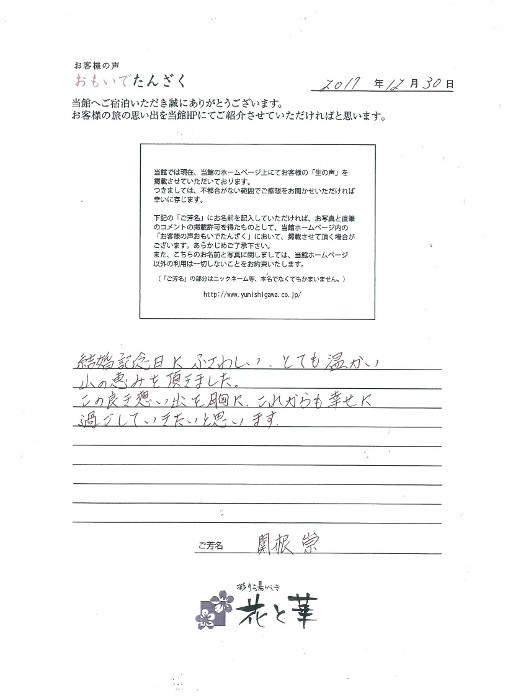 お客様の声
おもいでたんざく
2017年12月30日
当館へご宿泊いただき誠にありがとうございます。
お客様の旅の思い出を当館HPにてご紹介させていただければと思います。
当館では現在、当館のホームページ上にてお客様の「生の声」を
掲載させていただいております。
つきましては、不都合がない範囲でご感想をお聞かせいただければ
幸いに存じます。
下記の「ご芳名」にお名前を記入していただければ、お写真と直筆
のコメントの掲載許可を得たものとして、当館ホームページ内の
「お客様の声おもいでたんざく」において、掲載させて頂く場合が
ございます。あらかじめご了承下さい。
また、こちらのお名前と写真に関しましては、当館ホームページ
以外の利用は一切しないことをお約束いたします。
(「ご芳名」の部分はニックネーム等、本名でなくてもかまいません。)
http://www.yunishigawa.co.jp/
結婚記念日にふさわしい、とても温かい
山の恵みを頂きました。
この良き想い出を胸に、これからも幸せに
過ごしていきたいと思います。
ご芳名 関根 崇
彩り湯かしき
花と華